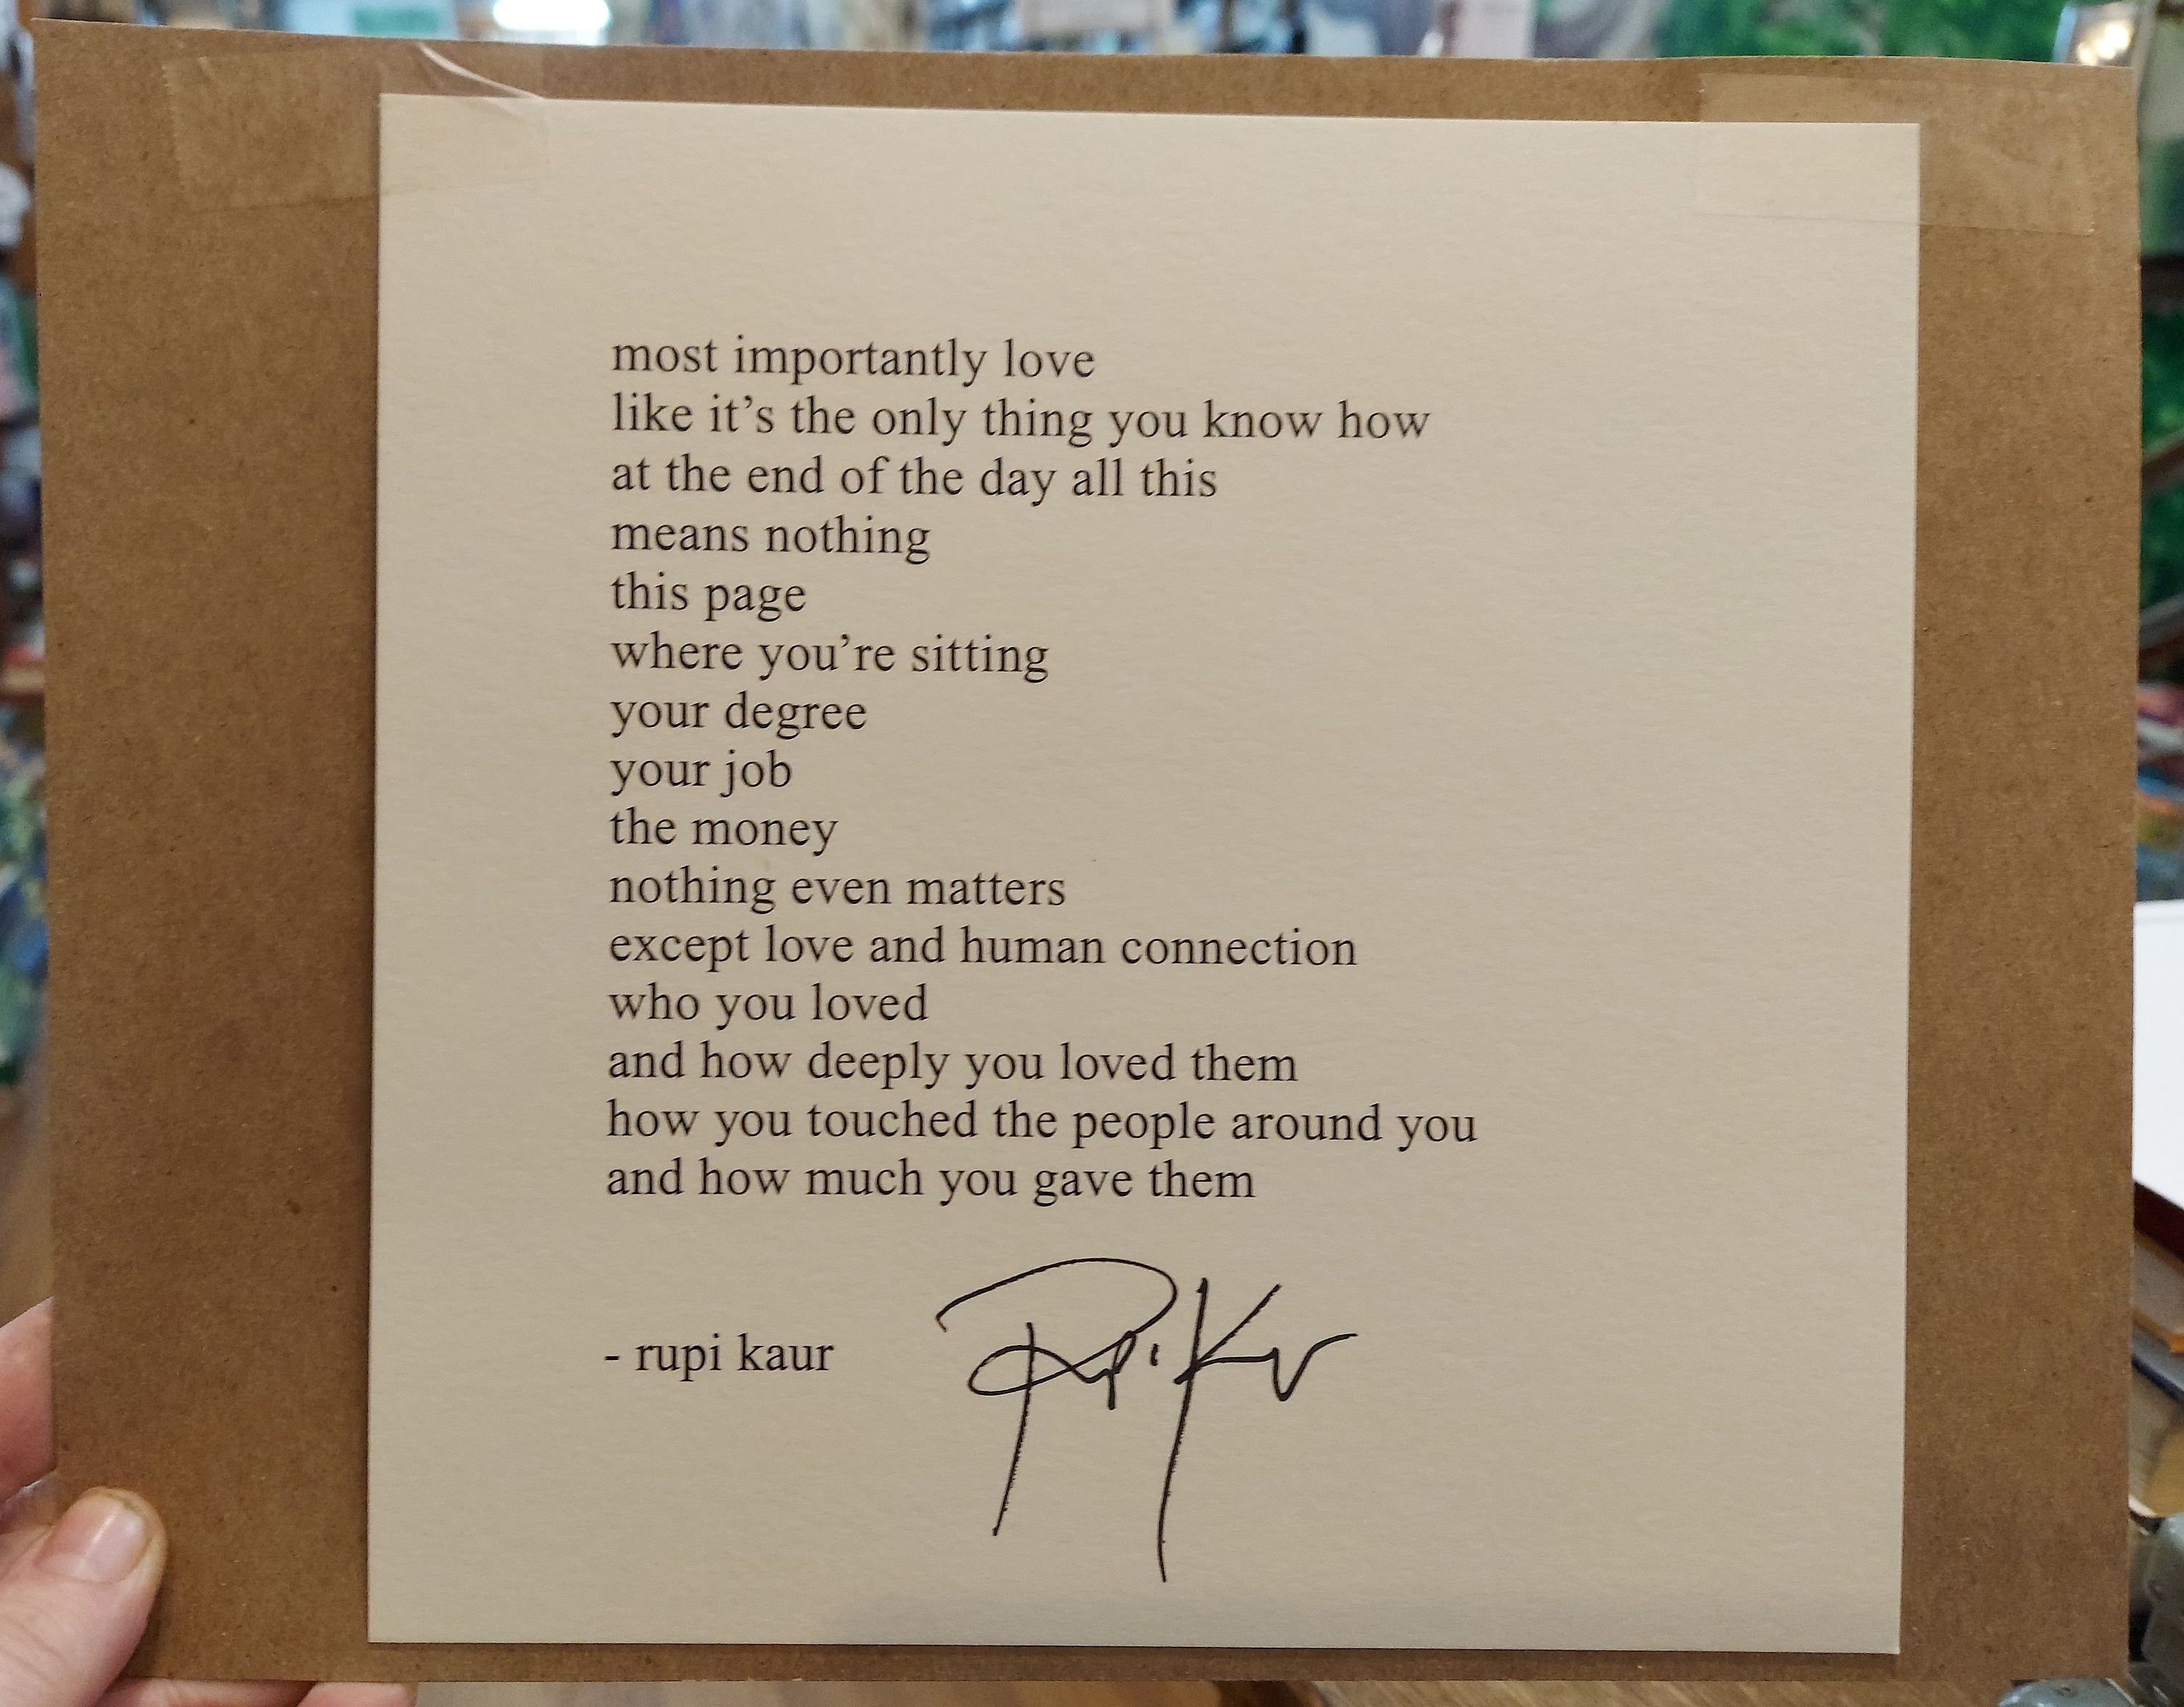 most importantly love
like it’s the only thing you know how
at the end of the day all this
means nothing
this page
where you’re sitting
your degree
your job
the money
nothing even matters
except love and human connection
who you loved
and how deeply you loved them
how you touched the people around you
and how much you gave them
- rupi kaur